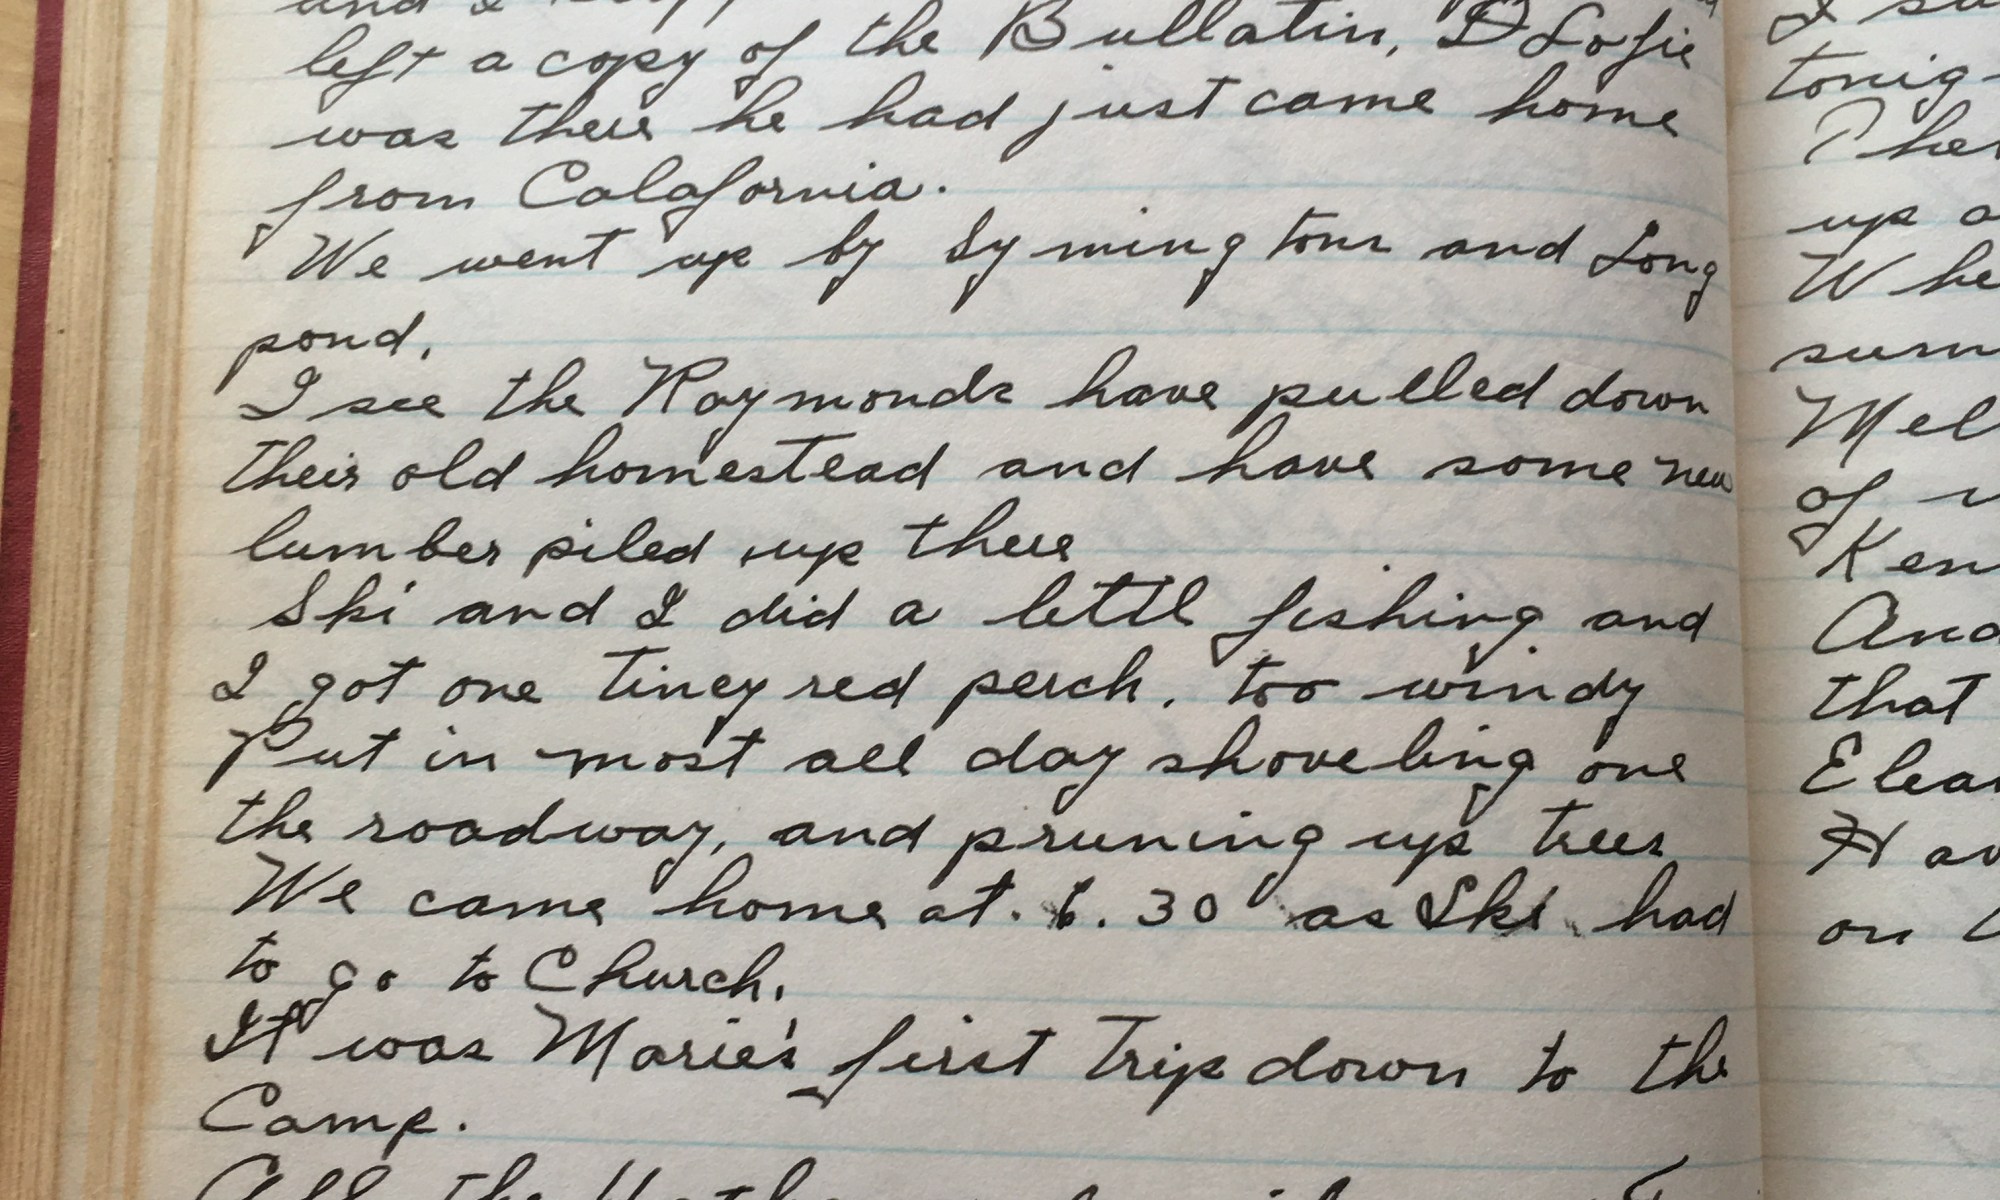 left a copy of the Bullatin, D Lofie
was there he had just came home
from Calafornia.
We went up by Symingtons and Long
pond.
I see the Raymonds have pulled down
their old homestead and have some new
lumber piled up there
Ski and I did a lettl fishing and
I got one tiney red perch. too windy
Put in most all day shoveling one
the roadway, and pruning up trees
We came home at. 6. 30 as Ski had
to go to Church.
It was Marie's first trip down to the
Camp.
All the
tonig
up a
Whe
sum
Mel
of
Ken
And
that
Elea
on